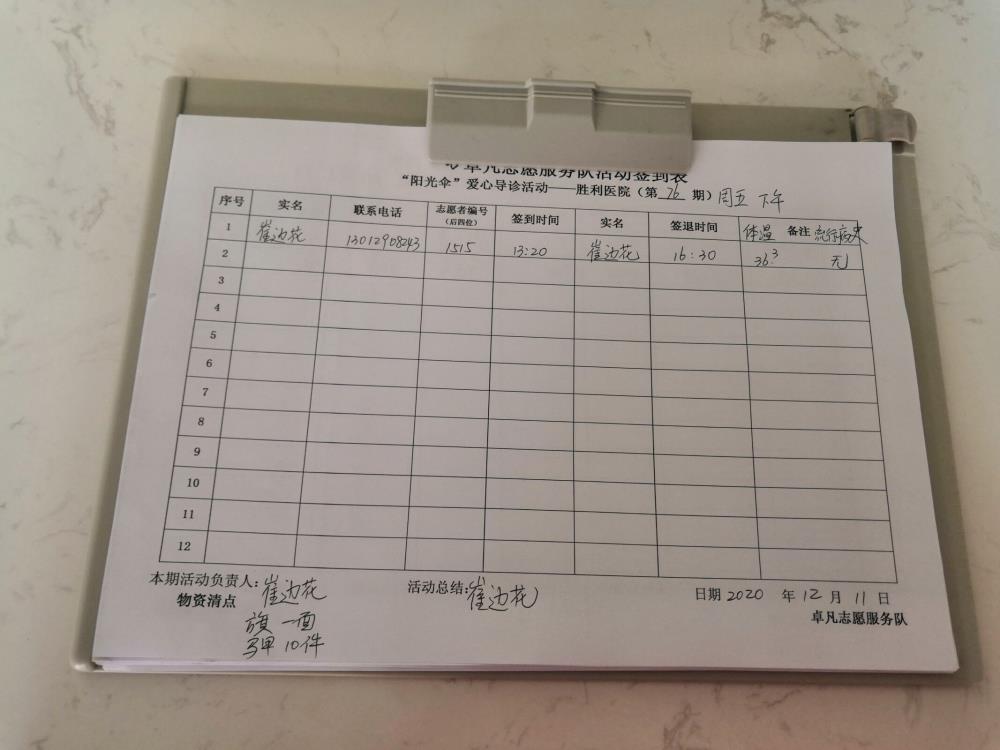 卓凡志愿服务队活动签到表
“阳光伞”爱心导诊活动——胜利医院（第 76 期）周五 下午
序号 实名 联系电话 志愿者编号（后四位） 签到时间 实名 签退时间 体温 备注 流行病史
1 崔边花 13012908243 1515 13:20 崔边花 16:30 36.3 无
2
3
4
5
6
7
8
9
10
11
12
本期活动负责人：崔边花 活动总结：崔边花 日期 2020 年 12 月 11 日
物资清点 卓凡志愿服务队
旗 一面
马甲 10件